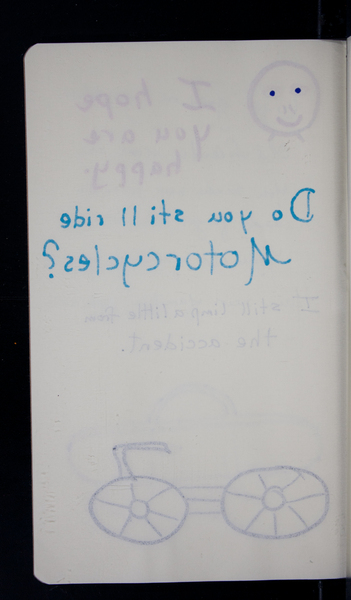 I hope
you are
happy.
Do you still ride
Motorcycles?
I still limp a little from
the accident.